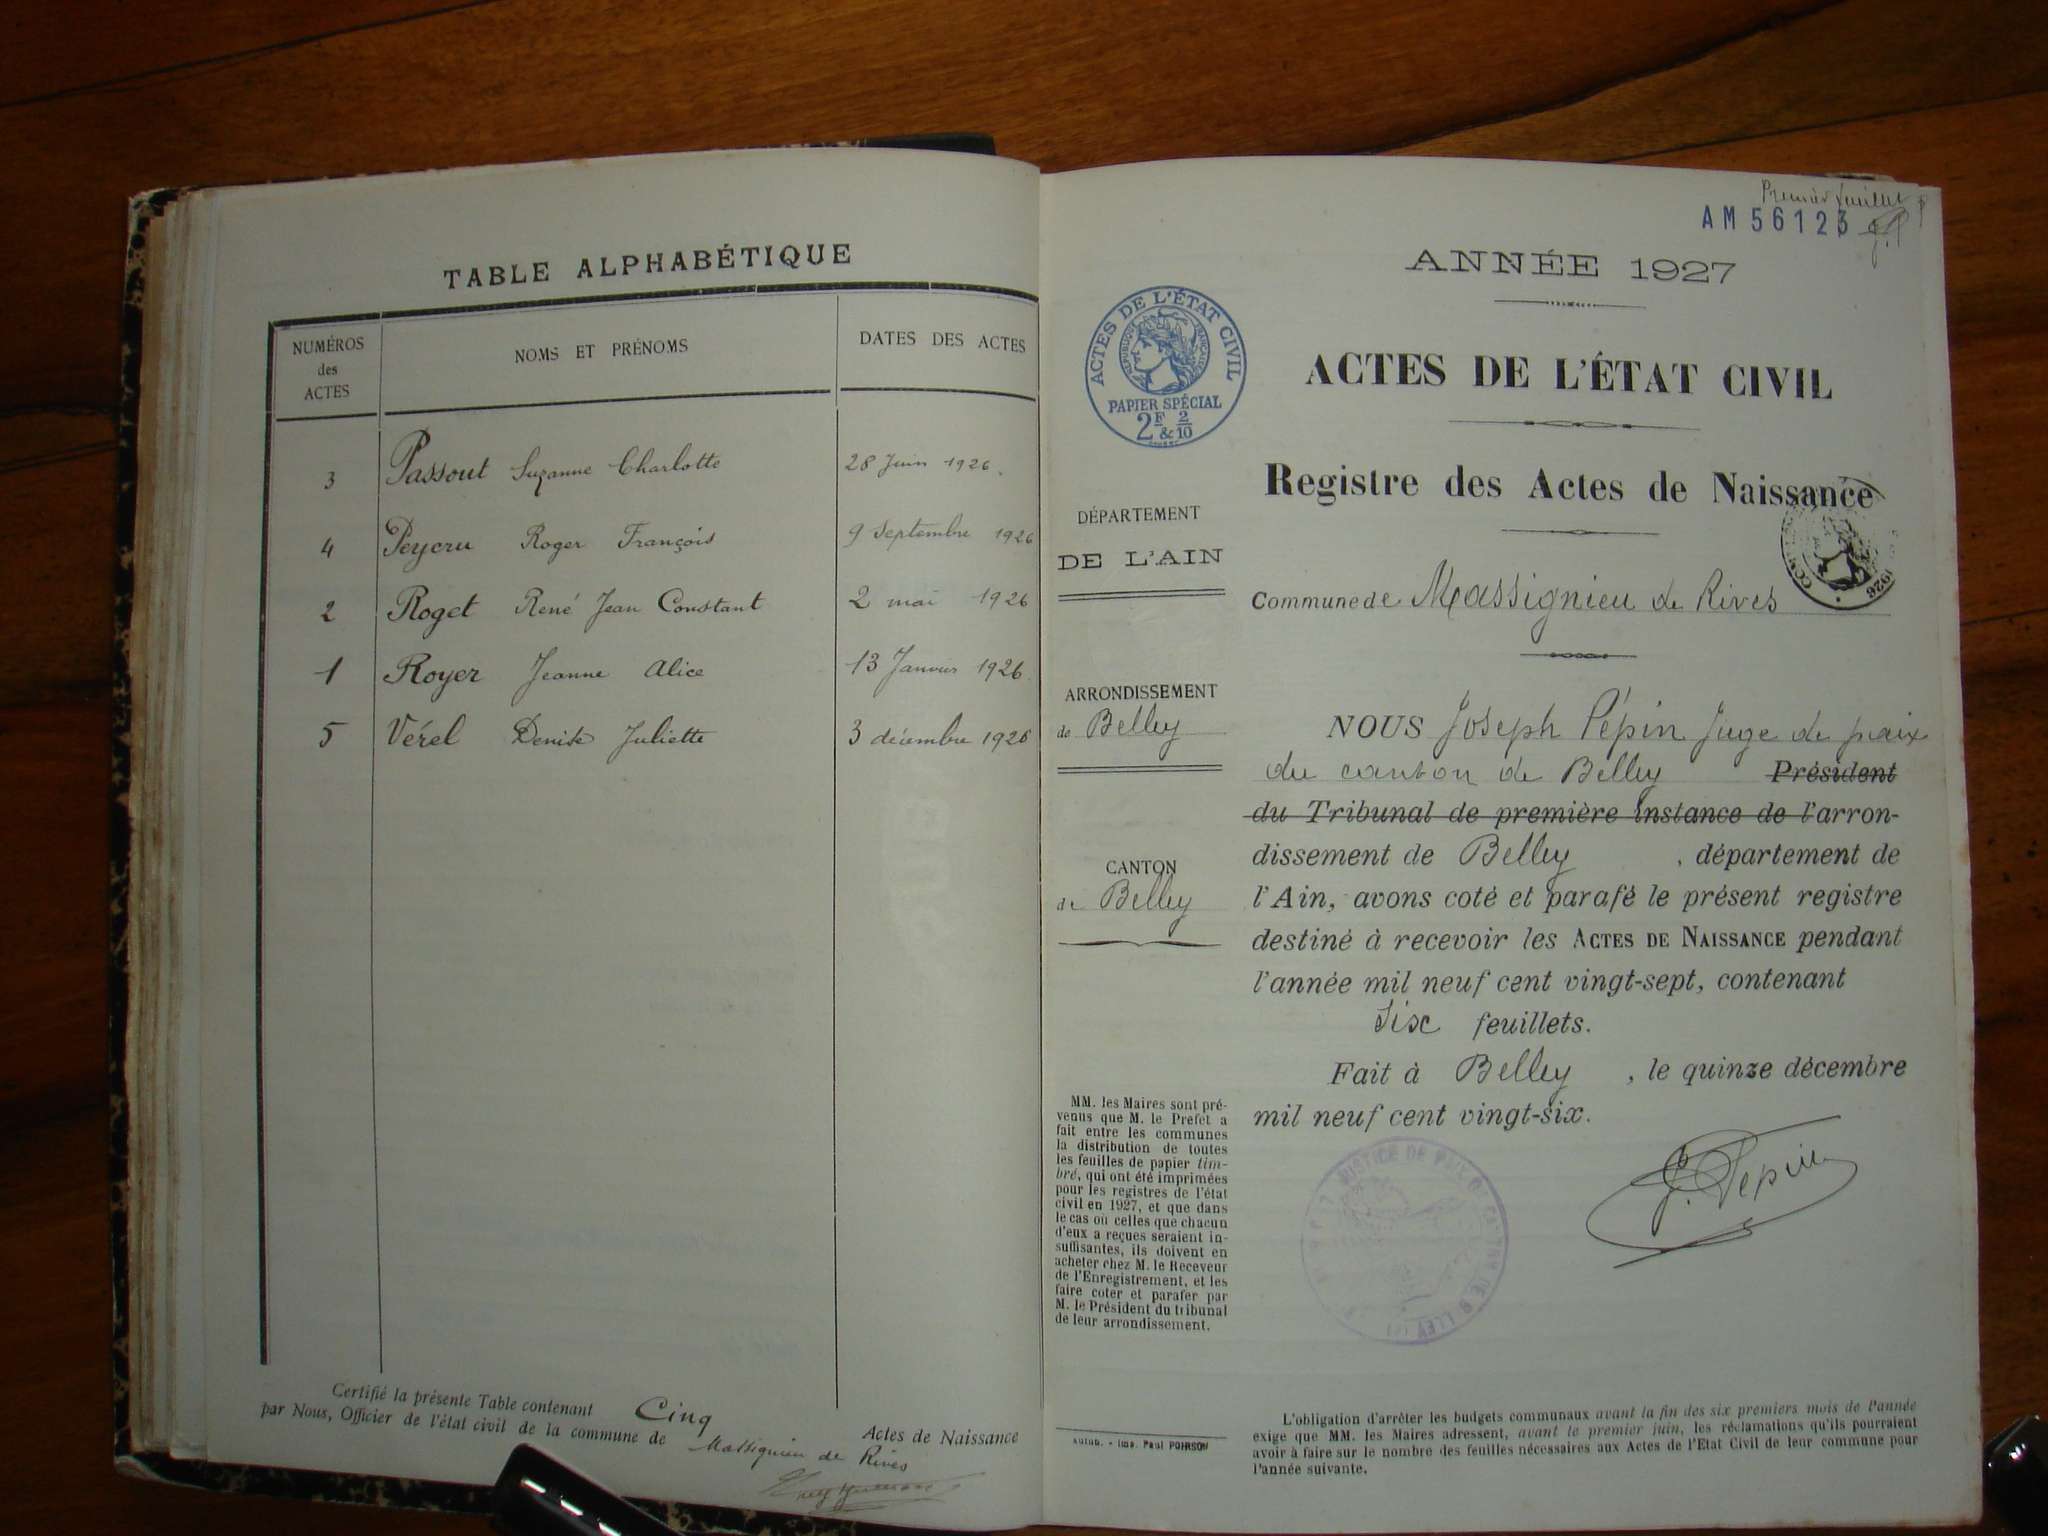 TABLE ALPHABÉTIQUE
NUMÉROS
des
ACTES
NOMS ET PRÉNOMS
DATES DES ACTES
3 Passout Suzanne Charlotte 28 Juin 1926.
4 Peycru Roger François 9 Septembre 1926
2 Roget René Jean Constant 2 mai 1926
1 Royer Jeanne Alice 13 Janvier 1926.
5 Vérel Denise Juliette 3 décembre 1926
Certifié la présente Table contenant Cinq Actes de Naissance
par Nous, Officier de l'état civil de la commune de Massignieu de Rives
Premier feuillet
AM 56123
ANNÉE 1927
ACTES DE L'ÉTAT CIVIL
RÉPUBLIQUE FRANÇAISE
PAPIER SPÉCIAL
2F & 2/10
ACTES DE L'ÉTAT CIVIL
Registre des Actes de Naissance
1926
DÉPARTEMENT
DE L'AIN
Commune de Massignieu de Rives
ARRONDISSEMENT
de Belley
CANTON
de Belley
NOUS Joseph Pépin Juge de paix
du canton de Belley Président
du Tribunal de première instance de l'arron-
dissement de Belley, département de
l'Ain, avons coté et parafé le présent registre
destiné à recevoir les ACTES DE NAISSANCE pendant
l'année mil neuf cent vingt-sept, contenant
Six feuillets.
Fait à Belley, le quinze décembre
mil neuf cent vingt-six.
J. Pépin
JUSTICE DE PAIX
MM. les Maires sont pré-
venus que M. le Préfet a
fait entre les communes
la distribution de toutes
les feuilles de papier tim-
bré, qui ont été imprimées
pour les registres de l'état
civil en 1927, et que dans
le cas où celles que chacun
d'eux a reçues seraient in-
suffisantes, ils doivent en
acheter chez M. le Receveur
de l'Enregistrement, et les
faire coter et parafer par
M. le Président du tribunal
de leur arrondissement.
Imp. Paul POIRSON
L'obligation d'arrêter les budgets communaux avant la fin des six premiers mois de l'année
exige que MM. les Maires adressent, avant le premier juin, les réclamations qu'ils pourraient
avoir à faire sur le nombre des feuilles nécessaires aux Actes de l'Etat Civil de leur commune pour
l'année suivante.